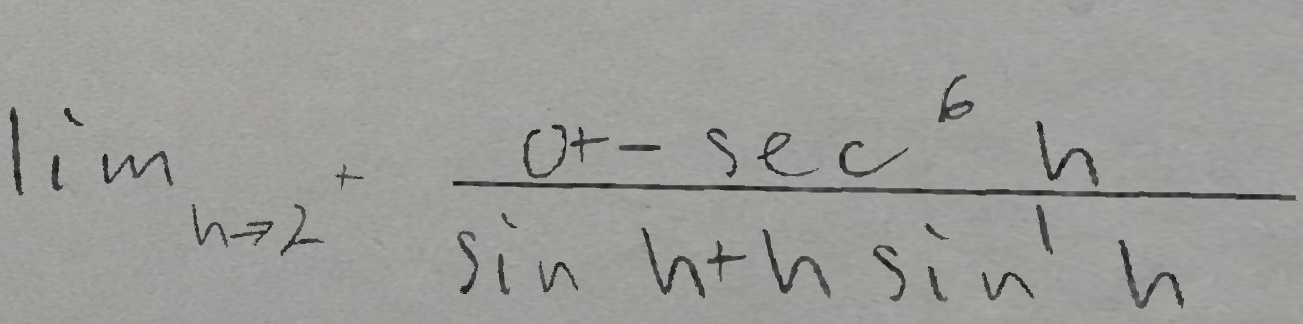 \lim_{h \to 2^+} \frac{0 + - \sec^6 h}{\sin h + h \sin^1 h}